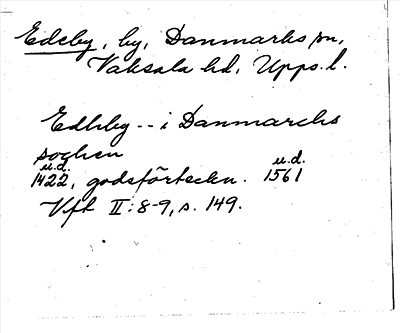 Edeby, by, Danmarks sn,
Vaksala hd, Upps. l.
Edhby -- i Danmarchs
soghen
u.d. u.d.
1422, godsförteckn. 1561
Vft II: 8-9, s. 149.